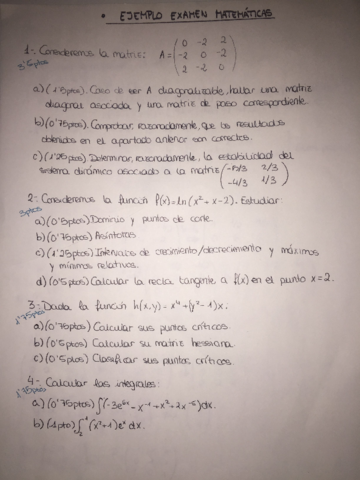 • EJEMPLO EXAMEN MATEMÁTICAS
1-. Consideremos la matriz: A = ( 0 -2 2
-2 0 -2
2 -2 0 )
a) (1'5ptos). Caso de ser A diagonalizable, hallar una matriz
diagonal asociada y una matriz de paso correspondiente.
b) (0'75ptos). Comprobar, razonadamente, que los resultados
obtenidos en el apartado anterior son correctos.
c) (1'25ptos) Determinar, razonadamente, la estabilidad del
sistema dinámico asociado a la matriz ( 2/3
-4/3 1/3 )
2-. Consideremos la función f(x) = ln(x² + x - 2). Estudiar:
3ptos
a) (0'5ptos) Dominio y puntos de corte.
b) (0'75ptos) Asíntotas.
c) (1'25ptos) Intervalos de crecimiento/decrecimiento y máximos
y mínimos relativos.
d) (0'5ptos) Calcular la recta tangente a f(x) en el punto x=2.
3-. Dada la función h(x,y) = x⁴ + (y² - 1)x:
1'75ptos
a) (0'75ptos) Calcular sus puntos críticos.
b) (0'5ptos) Calcular su matriz hessiana.
c) (0'5ptos) Clasificar sus puntos críticos.
4-. Calcular las integrales:
1'75ptos
a) (0'75ptos) ∫(-3e - x⁻⁴ + x² + 2x⁻⁵)dx.
b) (1pto) ∫ (x²+1)eˣ dx.